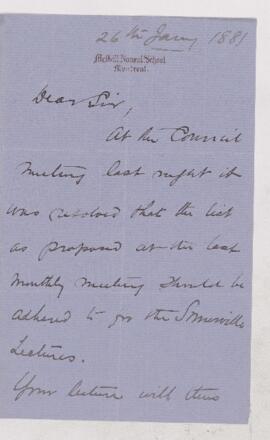 26th Jany 1881
McGill Normal School
Montreal.
Dear Sir,
At the Council
meeting last night it
was resolved that the list
as proposed at the last
monthly meeting should be
adhered to for the Somerville
Lectures.
Your lecture will thus